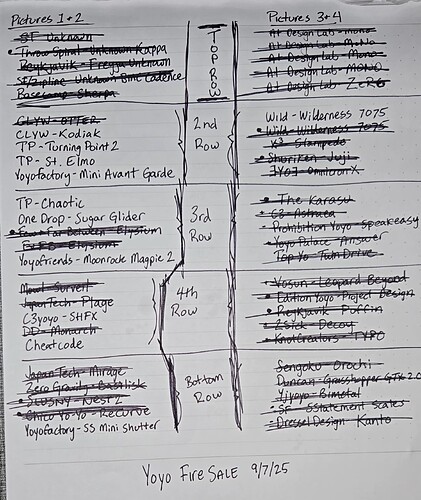 Pictures 1+2
SF Unknown
• Throw Spiral - Unknown Kappa
Reykjavik - Freyja Unknown
Unknown Cadence
Basecamp Sherpa
CLYW - OTTER
CLYW - Kodiak
TP - Turning Point 2
TP - St. Elmo
Yoyofactory - Mini Avant Garde
TP - Chaotic
One Drop - Sugar Glider
• Few + Far Between - Elysium
Elysium
Yoyofriends - Moonrock Magpie 2
Mowl - Surveil
JapanTech - Plage
C3yoyo - SHFX
DD - Monarch
Cheatcode
JapanTech - Mirage
Zero Gravity - Basilisk
Nest 2
• Chico Yo-Yo - Recurve
Yoyofactory - SS Mini Shutter
TOP ROW
2nd Row
3rd Row
4th Row
Bottom Row
Pictures 3+4
A1 Design Lab - Mono
A1 Design Lab - MoNo
A1 Design Lab - Mono
A1 Design Lab - MONO
A1 Design Lab - ZeRO
Wild - Wilderness 7075
• Wild - Wilderness 7075
X3 - Stampede
• Shuriken - Juji
JYO3 - Omnitron X
• The Karasu
• C3 - Astraea
Prohibition Yoyo - Speakeasy
• Yoyo Palace - Answer
Top Yo - Twin Drive
Vosun - Leopard Beyond
• Edition Yoyo - Project Design
• Reykjavik Puffin
• 2Sick - Decoy
• KnotCreators - TYPO
Sengoku - Orochi
Duncan - Grasshopper GTX 2.0
Yijoyo - Bimetal
• SF - SStatement Scales
• Dressel Design - Kanto
Yoyo Fire SALE 9/7/25